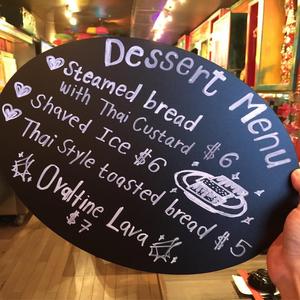 Dessert Menu
Steamed bread
with Thai Custard $6
Shaved Ice $6
Thai Style toasted bread $5
Ovaltine Lava
$7